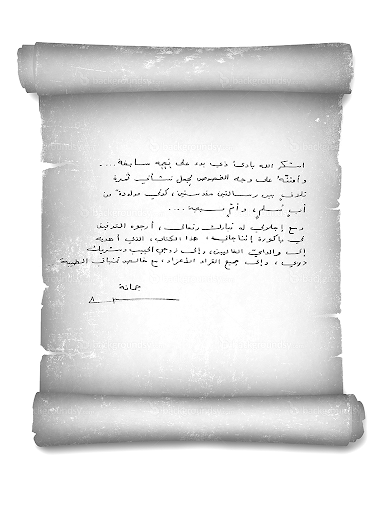 أشكر الله بادئ ذي بدء على نِعَمِه سابغة....
وأخصّه على وجه الخصوص لجعل نشأتي ثمرة
تلاقٍ بين رسالتين مقدستين، كوني مولودة من
أبٍ مُسلم، وأمٍّ مسيحية....
ومع إجلالي له تبارك وتعالى، أرجوه التوفيق
في باكورة إنتاجاتي: هذا الكتاب، الذي أهديه
إلى والديَّ الغاليين، وإلى زوجي الحبيب وشريك
دربي، وإلى جميع القراء الأعزاء، مع خالص تمنياتي الطيبة
جمانة